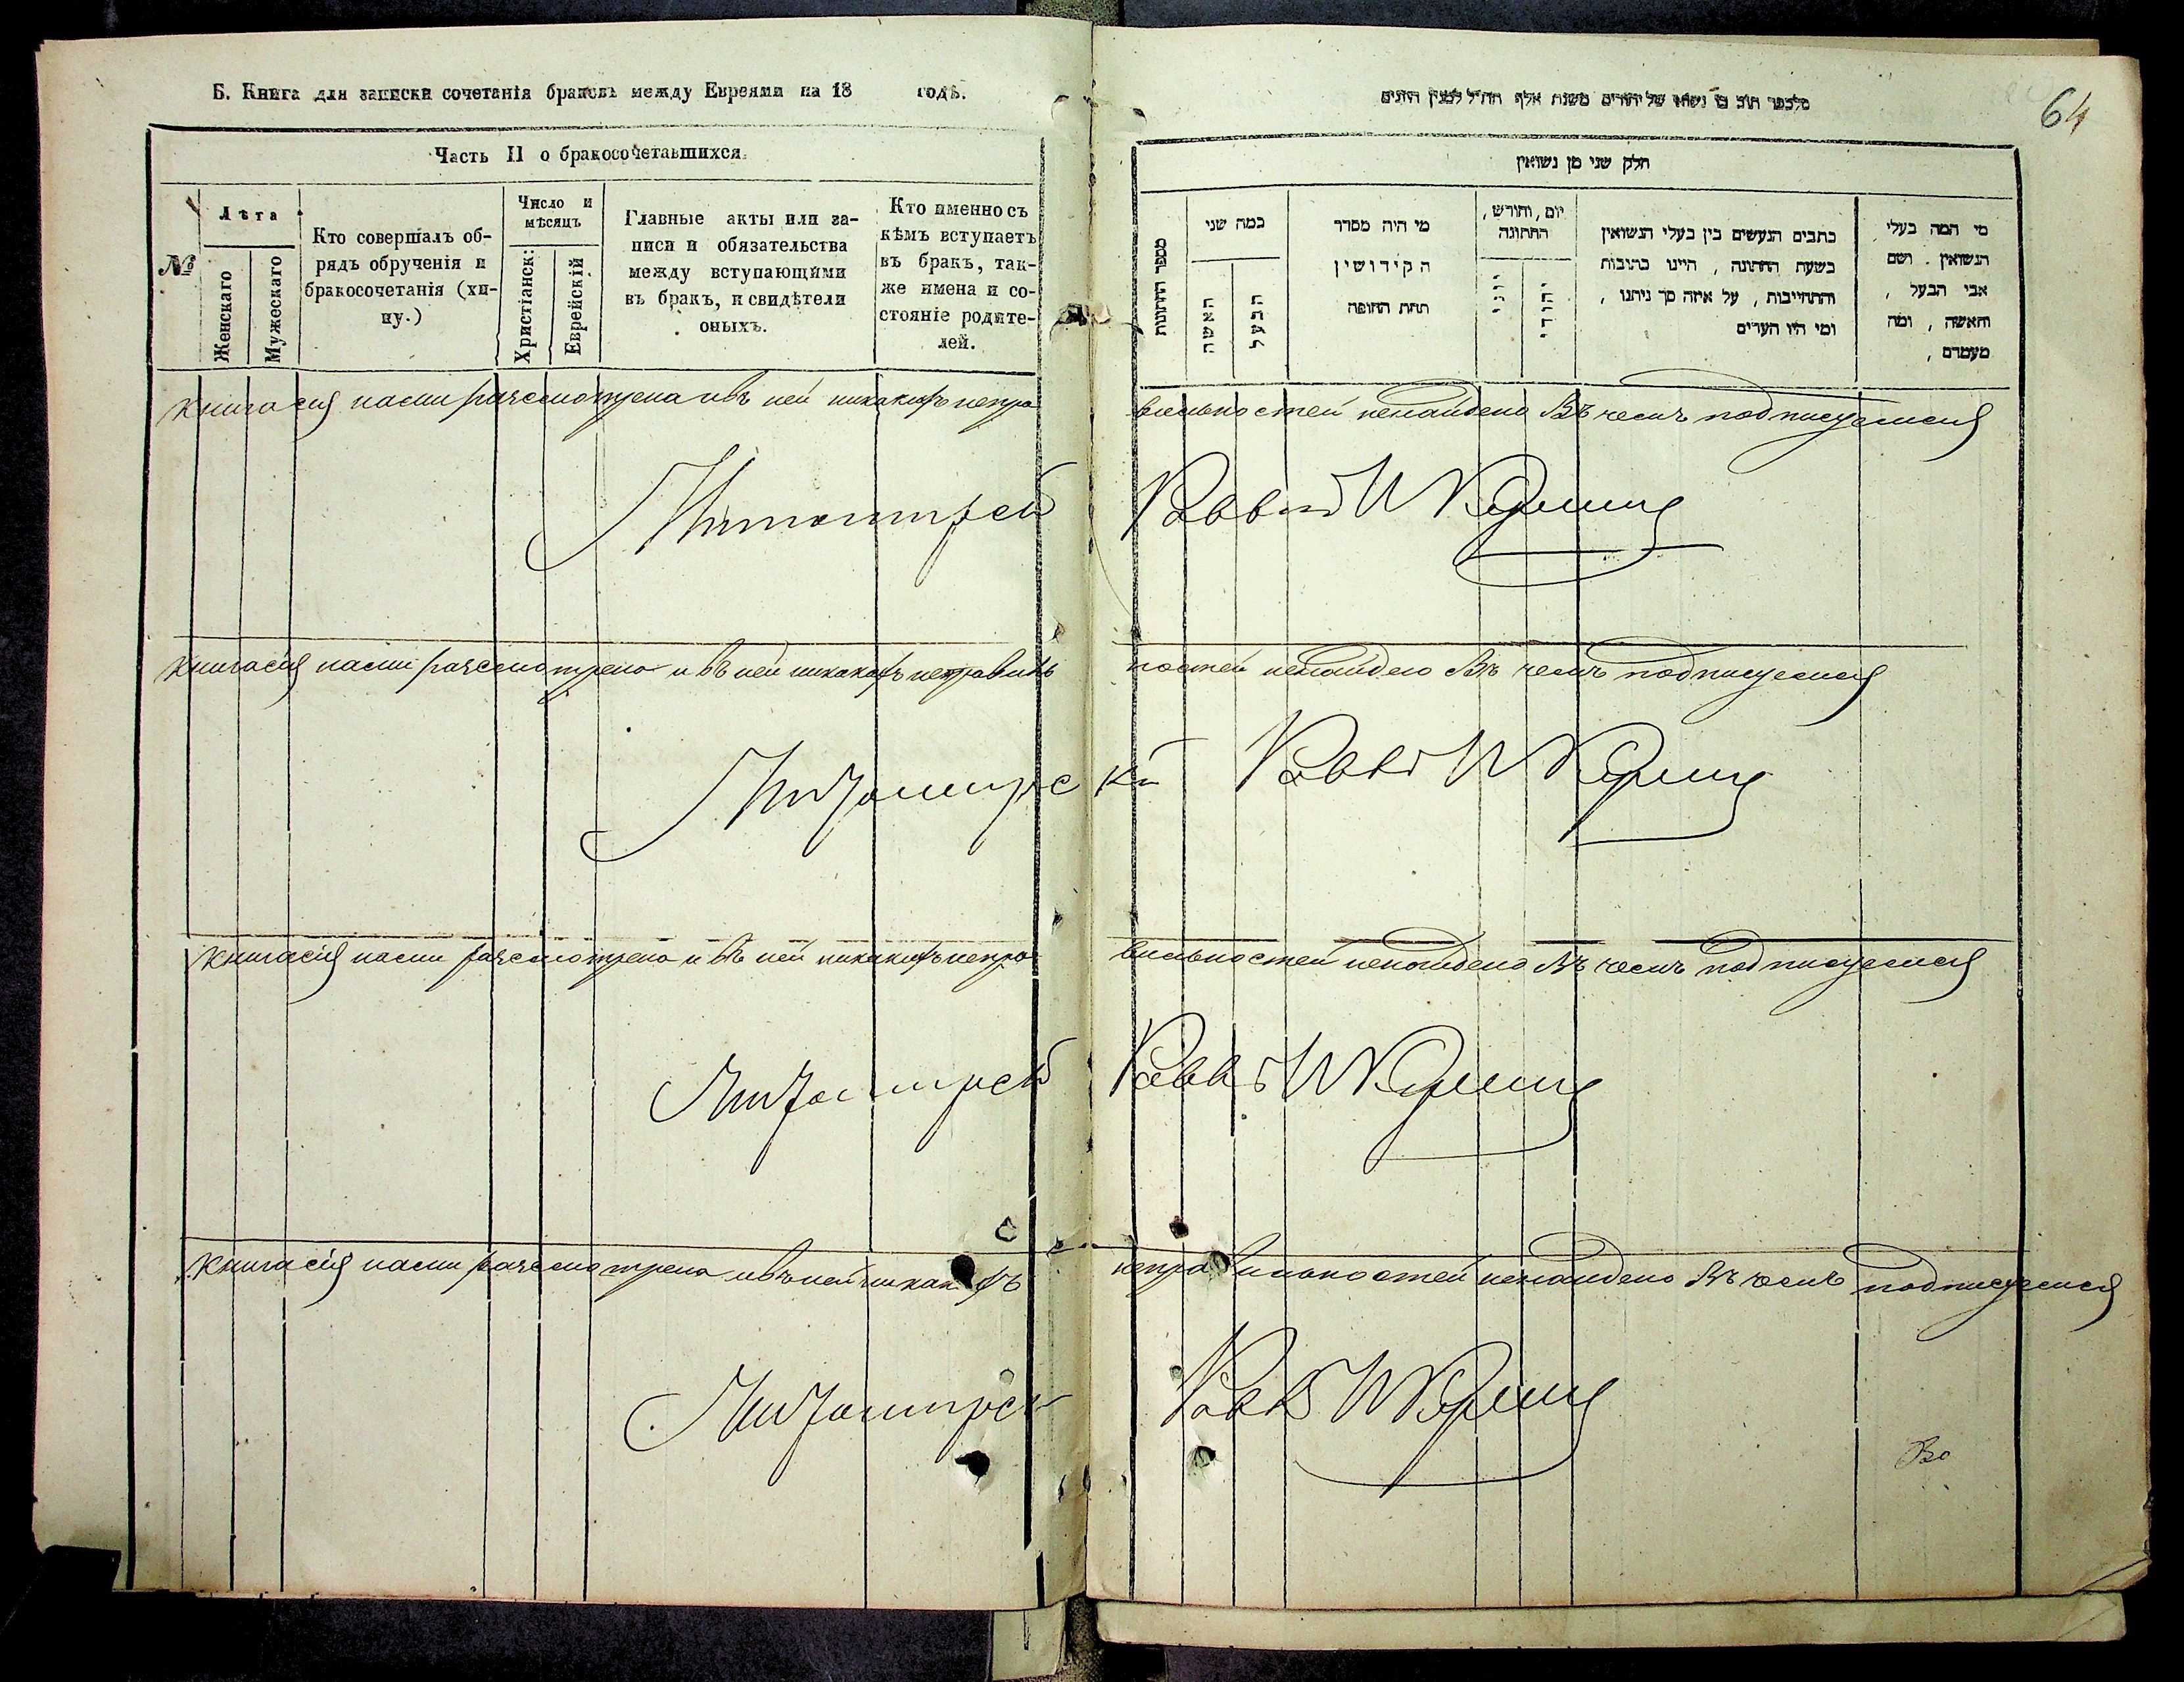 Б. Книга для записки сочетанія браковъ между Евреями на 18 годъ.
Часть II о бракосочетавшихся.
№
Лѣта
Женскаго
Мужескаго
Кто совершалъ об-
рядъ обрученія и
бракосочетанія (хи-
пу.)
Число и
мѣсяцъ
Христіанск:
Еврейскій
Главные акты или за-
писи и обязательства
между вступающими
въ бракъ, и свидѣтели
оныхъ.
Кто именно съ
кѣмъ вступаетъ
въ бракъ, так-
же имена и со-
стояніе родите-
лей.
64
חלק שני מן נשואין
מספר החתונות
במה שני
האשה
הבעל
מי היה מסדר
הקידושין
תחת החופה
יום, וחודש,
החתונה
יוני
יהודי
כתבים הנעשים בין בעלי הנשואין
בשעת החתונה, היינו כתובות
והתחייבות, על איזה סך ניתנו,
ומי היו העדים
מי המה בעלי
הנשואין. ושם
אבי הבעל,
והאשה, ומה
מעמדם,
Книга сія нами разсмотрена и въ ней никакихъ непра
вильностей ненайдено Въ чемъ подписуемся
Житомирскій
Раввинъ И
Книга сія нами разсмотрена и въ ней никакихъ неправиль
ностей ненайдено Въ чемъ подписуемся
Житомирскій
Раввинъ И
Книга сія нами разсмотрена и въ ней никакихъ непра
вильностей ненайдено Въ чемъ подписуемся
Житомирскій
Раввинъ И
Книга сія нами разсмотрена и въ ней никакихъ
неправильностей ненайдено Въ чемъ подписуемся
Житомирскій
Раввинъ И
Во